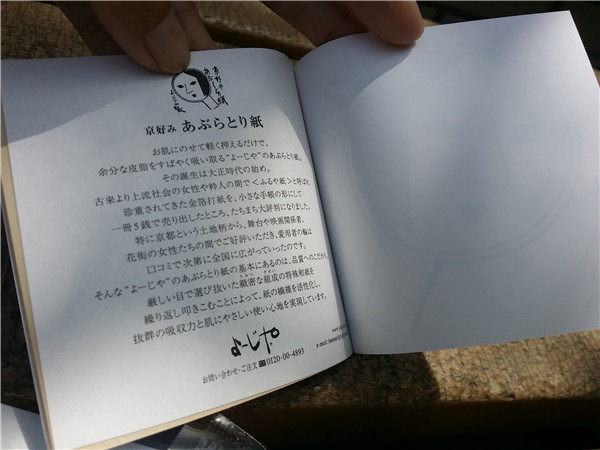 京好み
あぶらとり紙
よーじや
京好み あぶらとり紙
お肌にのせて軽く押えるだけで、
余分な皮脂をすばやく吸い取る“よーじや”のあぶらとり紙。
その誕生は大正時代の始め。
古来より上流社会の女性や粋人の間で＜ふるや紙＞と呼ばれ
珍重されてきた金箔打紙を、小さな手帳の形にして
一冊5銭で売り出したところ、たちまち大評判になりました。
特に京都という土地柄から、舞台や映画関係者、
花街の女性たちの間でご好評いただき、愛用者の輪は
口コミで次第に全国に広がっていったのです。
そんな“よーじや”のあぶらとり紙の基本にあるのは、品質へのこだわり。
厳しい目で選び抜いた緻密な組成の特殊和紙を
繰り返し叩きこむことによって、紙の繊維を活性化し、
抜群の吸収力と肌にやさしい使い心地を実現しています。
よーじや
お問い合わせ・ご注文 0120-00-4893
www.
e-mail